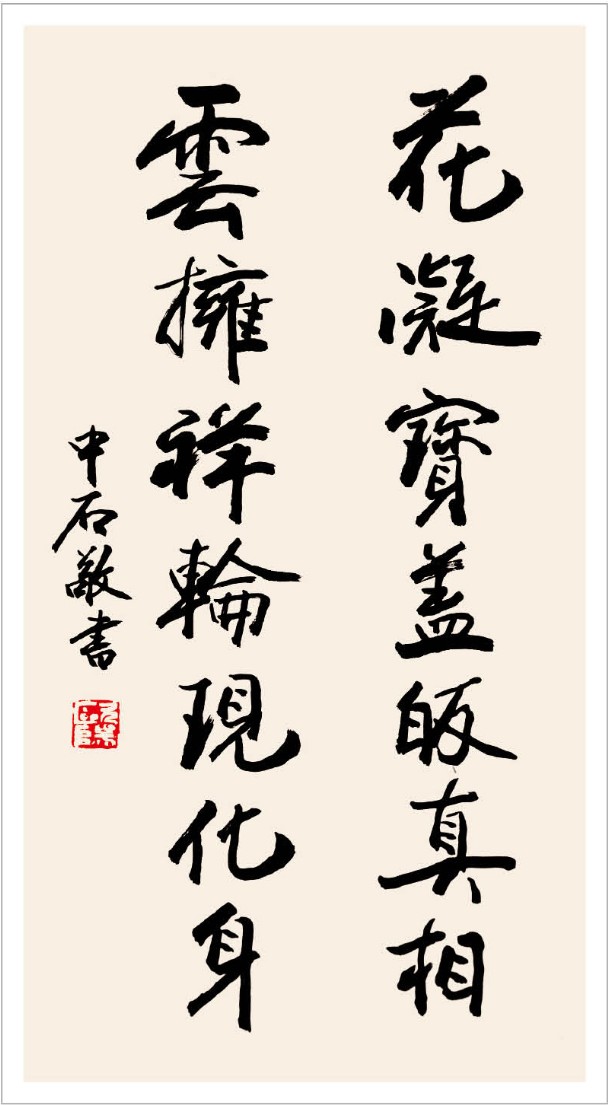 花凝寶盖皈真相
雲擁祥輪現化身
中石敬書